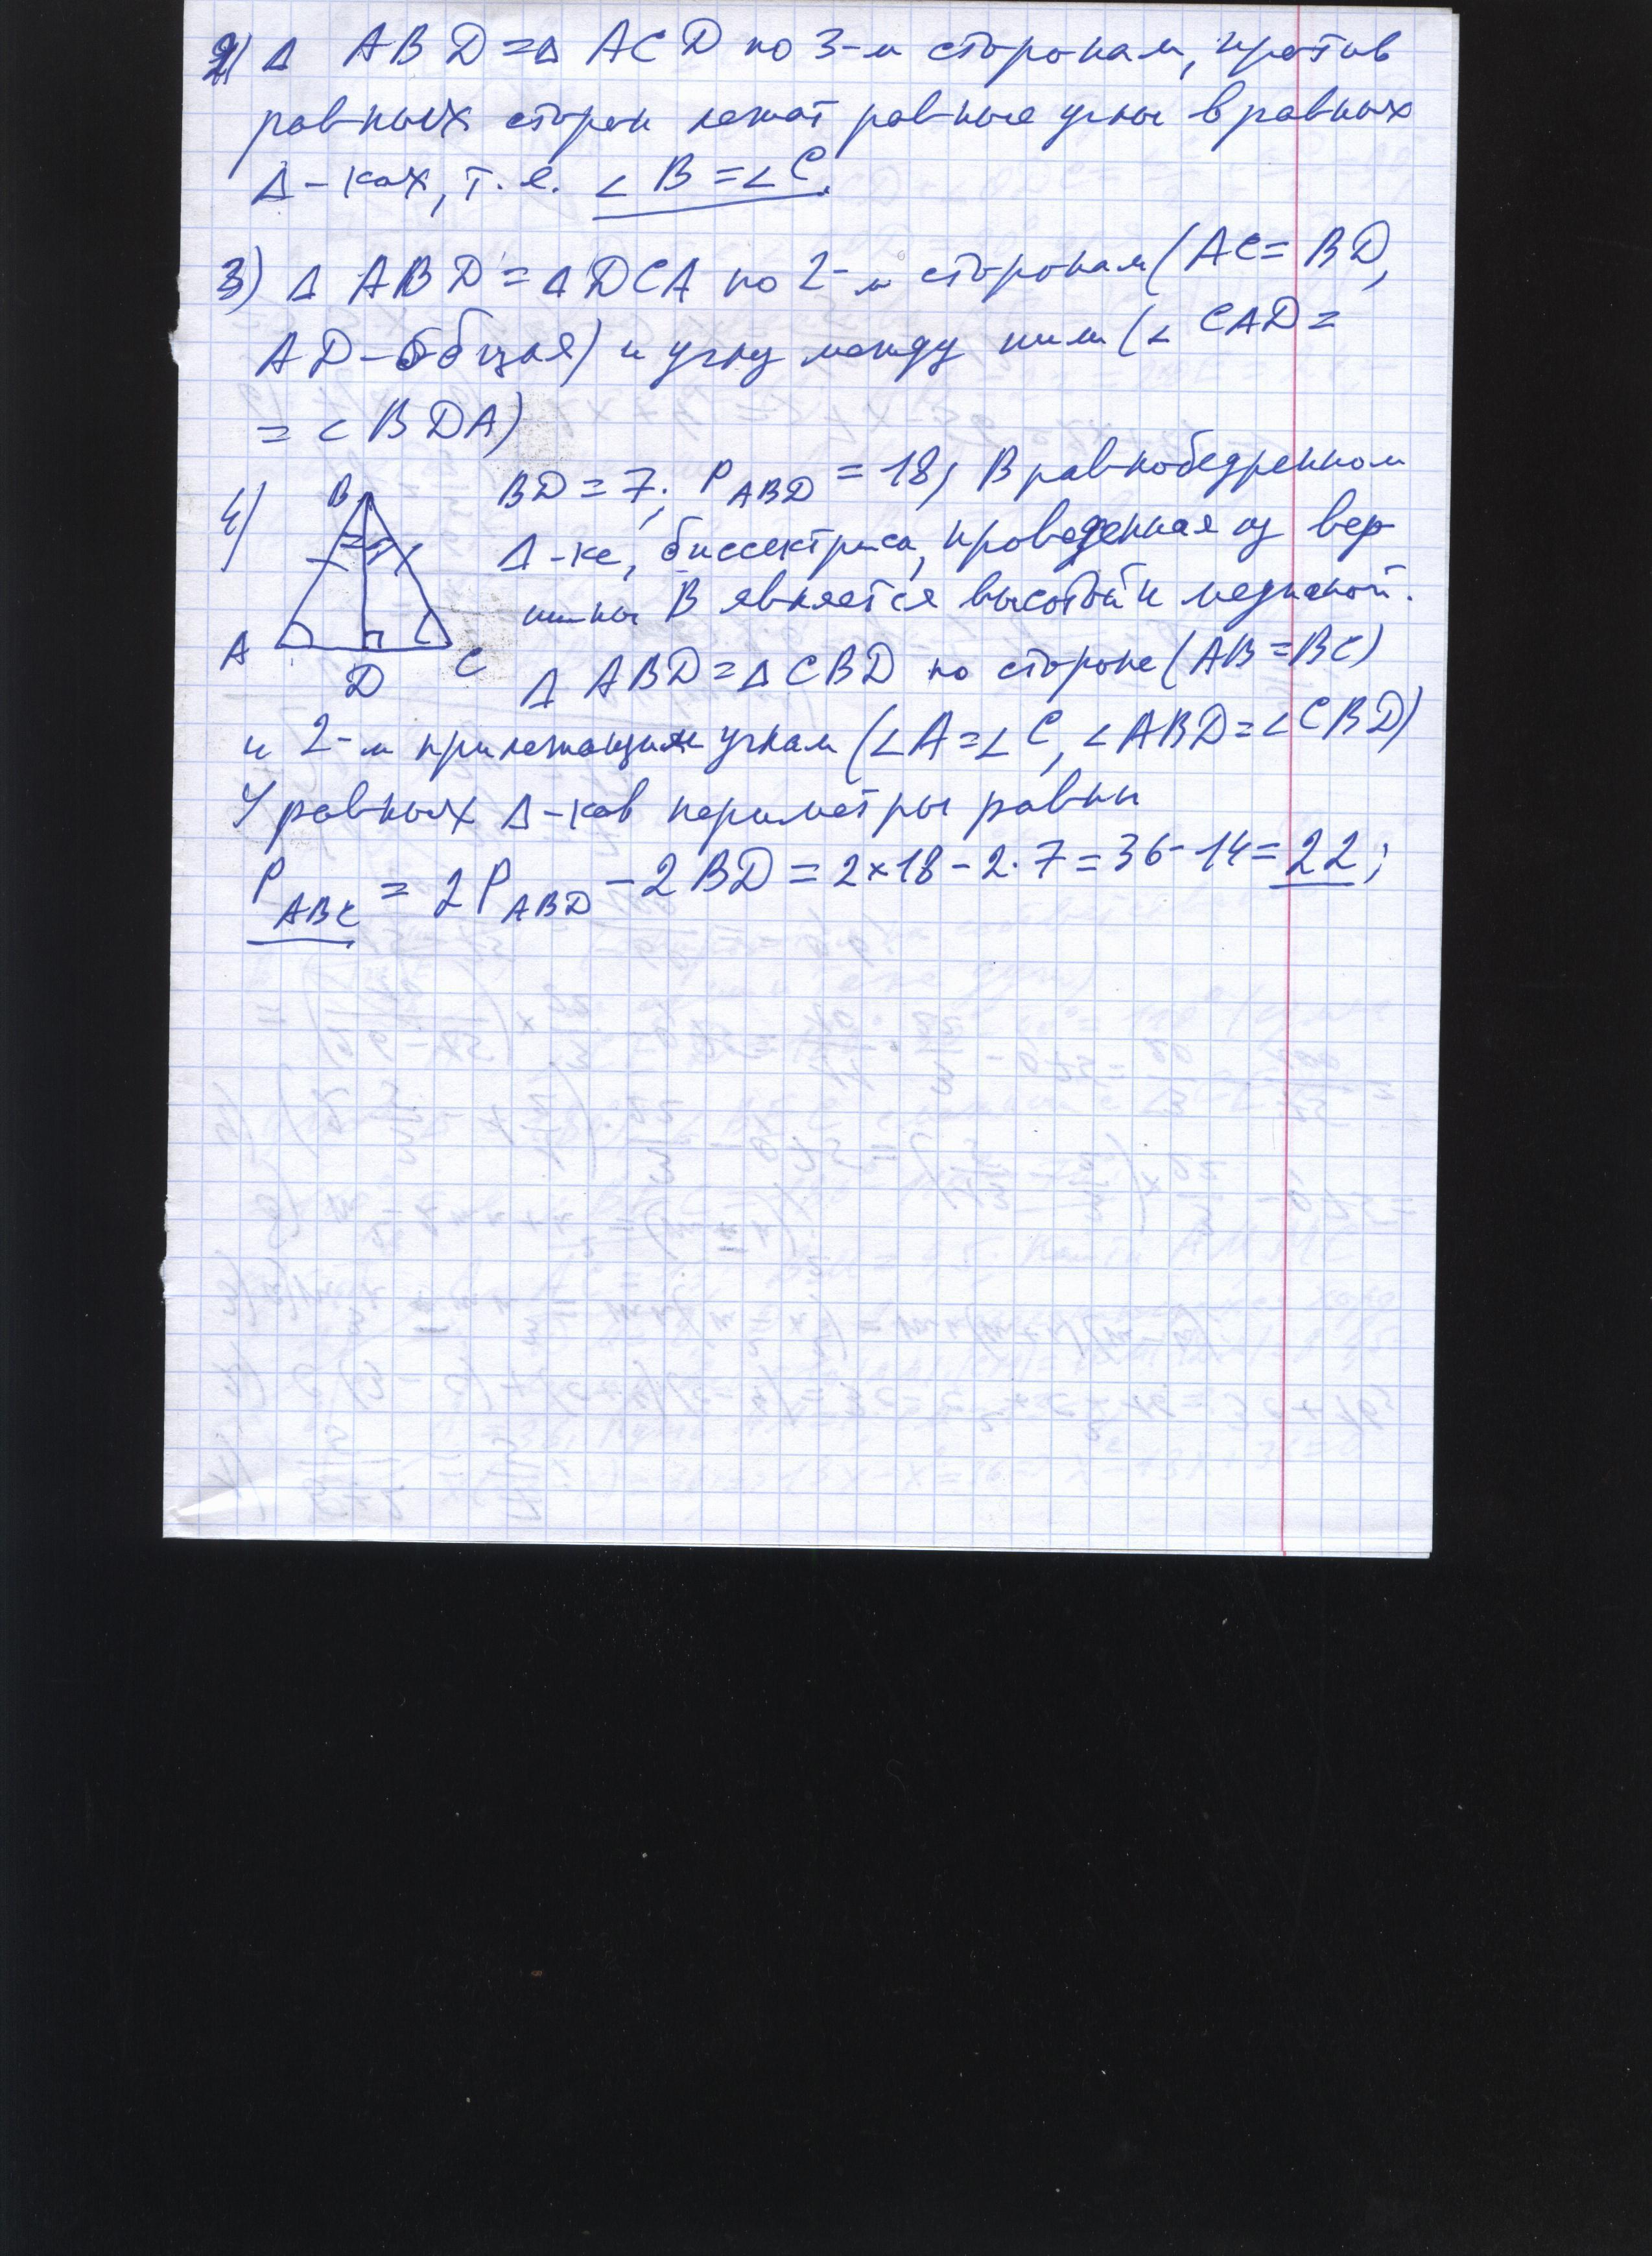 2) Δ ABD = Δ ACD по 3-м сторонам, против
равных сторон лежат равные углы в равных
Δ-ках, т.е. ∠B = ∠C.
3) Δ ABD = Δ DCA по 2-м сторонам (AC = BD,
AD - общая) и углу между ними (∠CAD =
= ∠BDA)
4) BD = 7; P ABD = 18; В равнобедренном
Δ-ке, биссектриса, проведенная из вер-
шины B является высотой и медианой.
B
A
D
C
Δ ABD = Δ CBD по стороне (AB = BC)
и 2-м прилежащим углам (∠A = ∠C, ∠ABD = ∠CBD)
У равных Δ-ков периметры равны
P ABC = 2P ABD - 2BD = 2×18 - 2·7 = 36 - 14 = 22;